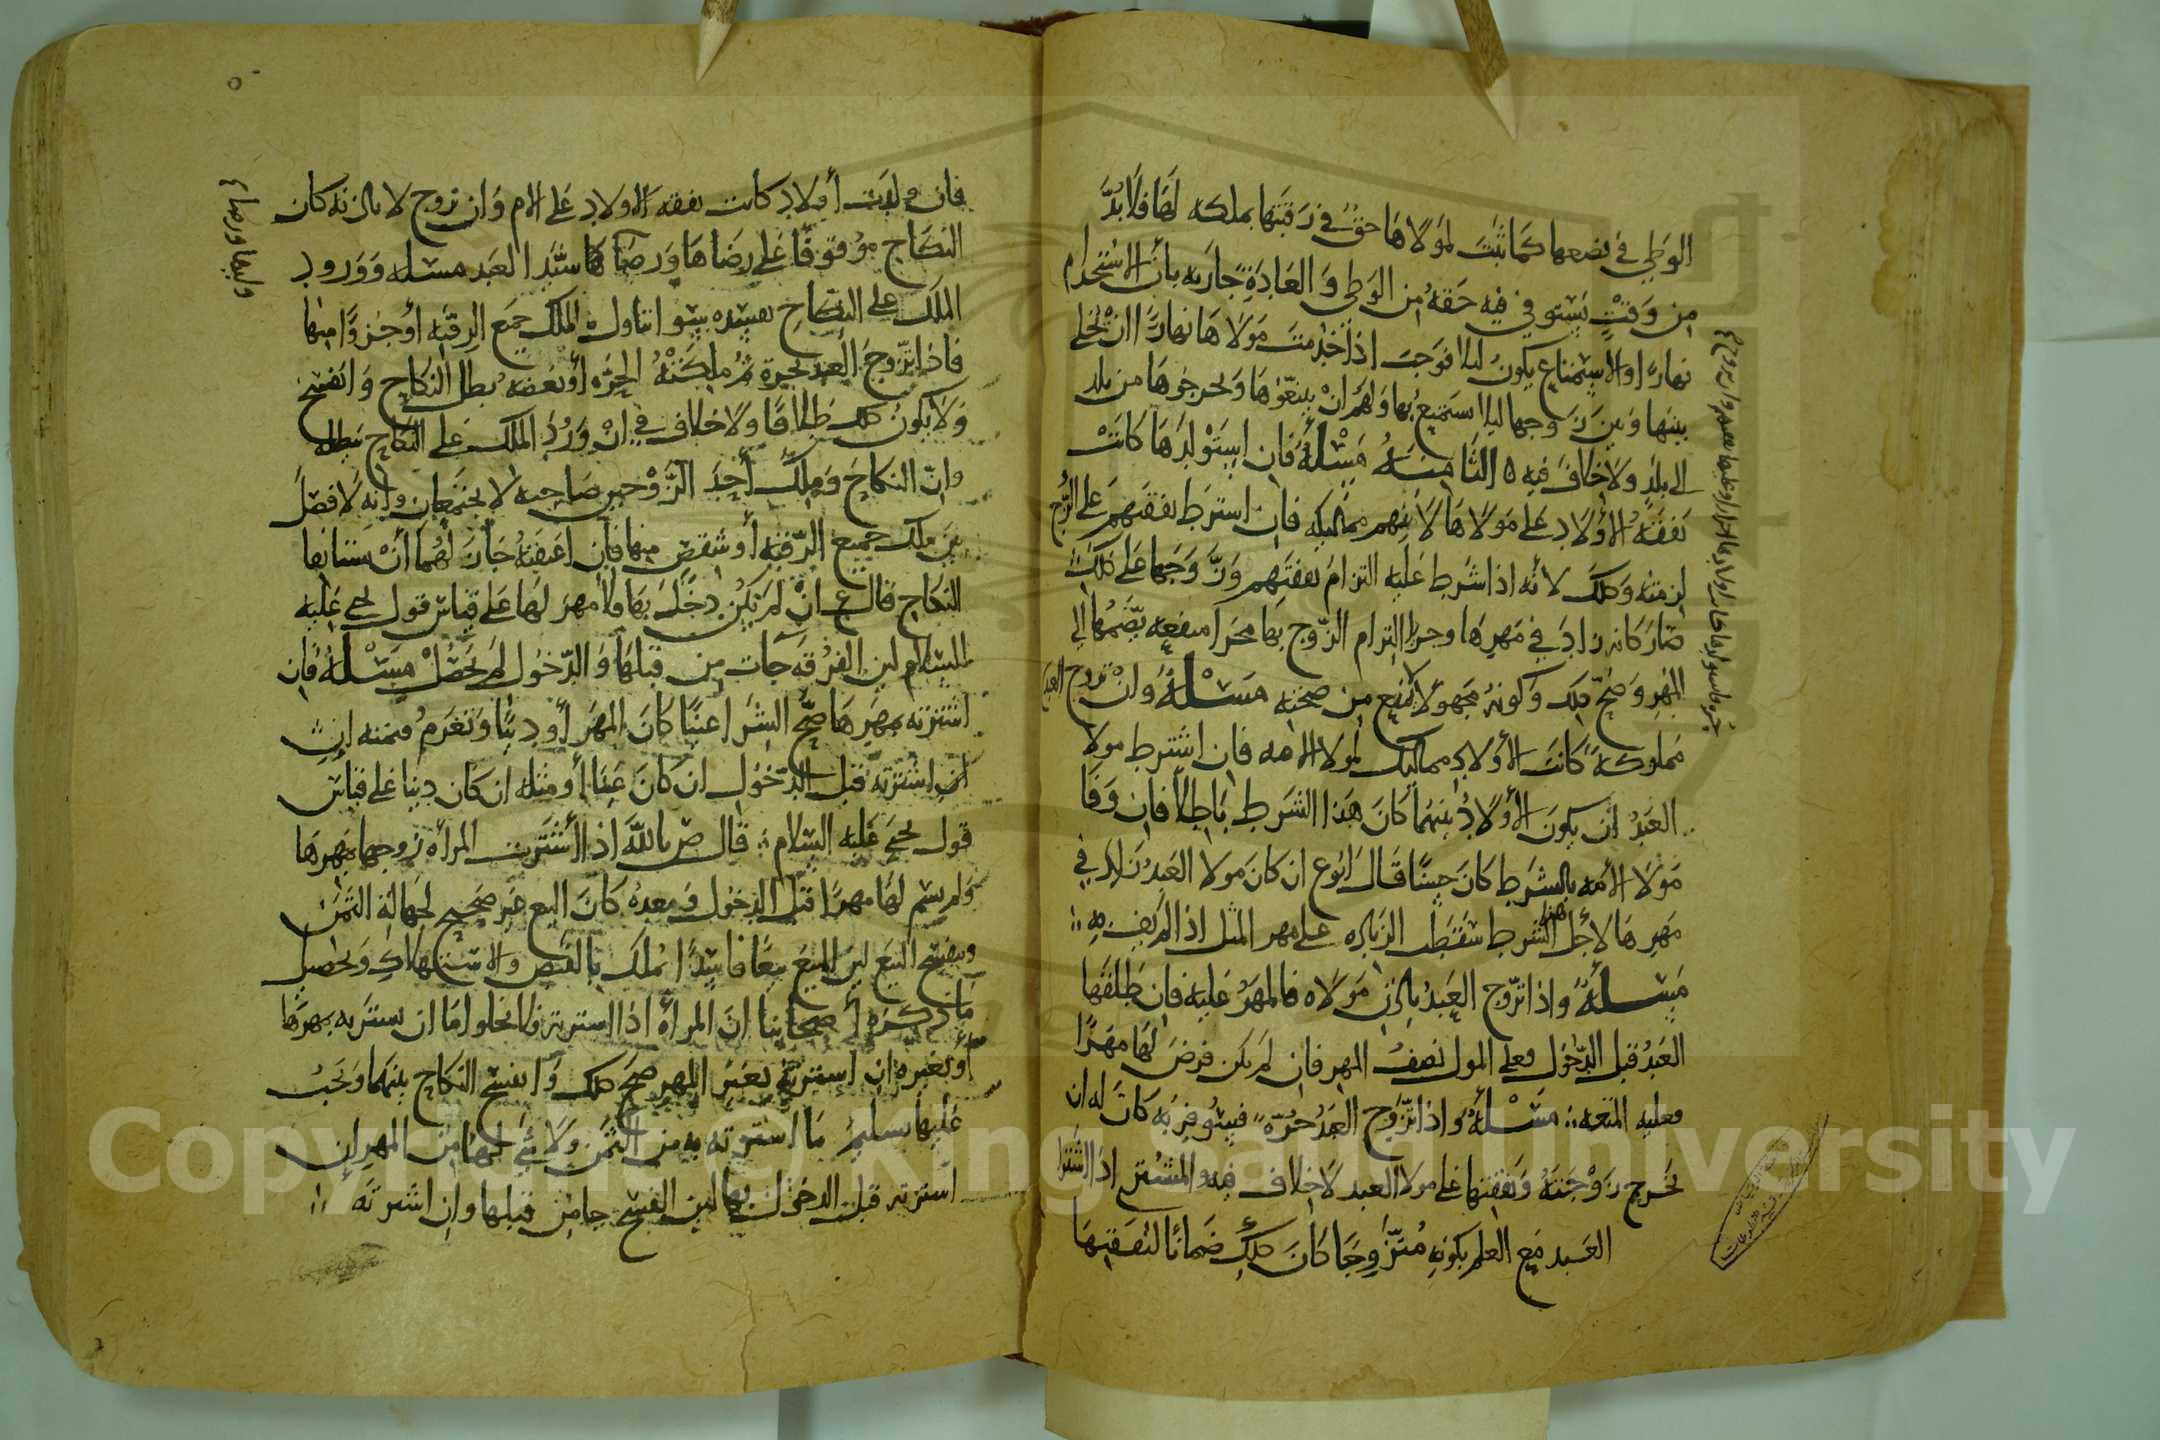 الوطي في بضعها كما ثبت لمولاها حق في رقبتها بملكه لها فلا بدَّ
من وقتٍ يستوفي فيه حقه من الوطي و العادة جاريه بأن الاستخدام
نهارًا والاستمتاع يكون ليلا فوجب اذا خدمت مولاها نهارًا ان تخلي
بينها وبين زوجها ليلا ليستمتع بها ولهم ان يبيعوها ويخرجوها من بلد
الى بلد ولا خلاف فيه ه الثامنه مَسْئلة فان استولدها كانت
نفقة الأولاد على مولاها لانهم مماليكه فان اشترط نفقتهم على الزوج
لزمته وذلك لانه اذا شرط عليه التزام نفقتهم وزوجها على ذلك
صار كانه زاد في مهرها وجرا التزام الزوج بها مجرا منفعه يضمها الى
المهر وصح ذلك وكونه مجهولا لا يمنع من صحته مسئلة وان تزوج العبد
مملوكة كانت الأولاد مماليك لمولا الامه فان اشترط مولا
العبد ان يكون الأولاد بينهما كان هذا الشرط باطلا فان وفا
مولا الامه بالشرط كان حسنا قال ابوع ان كان مولا العبد زاد في
مهرها لأجل هذا الشرط سقطت الزياده على مهر المثل اذا لم يف به
مسئلة واذا تزوج العبد باذن مولاه فالمهر عليه فان طلقها
العبد قبل الدخول فعلى المولى نصف المهر فان لم يكن فرض لها مهرًا
فعليه المتعه مسئلة واذا تزوج العبد حرّة فيستوفز به كان له ان
تخرج زوجته ونفقتها على مولا العبد لا خلاف فيه والمشتري اذا اشترا
العبد مع العلم بكونه متزوجا كان ذلك ضمانا لنفقتها
فان ولدت أولاد كانت نفقه الاولاد على الام وان تزوج لا باذنه كان
النكاح موقوفًا على رضاها ورضا سيد العبد مسئله وورود
الملك على النكاح يفسده سوا تناول الملك جميع الرقبه أو جزوًا منها
فاذا تزوج العبد بحرة ثم ملكته الحره أو بعضه بطل النكاح وانفسخ
ولا يكون ذلك طلاقا ولا خلاف في ان ورود الملك على النكاح يبطله
وان النكاح وملك أحد الزوجين صاحبه لا يجتمعان وانه لا فصل
بين ملك جميع الرقبه أو شقص منها فان اعتقته جاز لهما أن يستانفا
النكاح قال ع ان لم يكن دخل بها فلا مهر لها على قياس قول يحي عليه
السلام لان الفرقه جات من قبلها والدخول لم يحصل مسئلة فان
اشترته بمهرها صح الشرا عينًا كان المهر أو دينًا وتغرم قيمته ان
اشترته قبل الدخول ان كان عينا أو مثله ان كان دينا على قياس
قول يحي عليه السلام قال ص بالله اذا اشترت المرأه زوجها بمهرها
ولم يسم لها مهرا قبل الدخول وبعده كان البيع غير صحيح لجهالة الثمن
وينفسخ البيع لان المبيع بيعًا فاسدًا يملك بالقبض والاستهلاك وتحصيل
ما ذكره أصحابنا ان المرأه اذا اشترته فلا يخلوا اما ان تشتريه بمهرها
أو بغيره ان اشترته بغير المهر صح ذلك وانفسخ النكاح بينهما ويجب
عليها تسليم ما اشترته به من الثمن ولا شي لها من المهر ان
اشترته قبل الدخول بها لان الفسخ جا من قبلها وان اشترته
Copyright © King Saud University